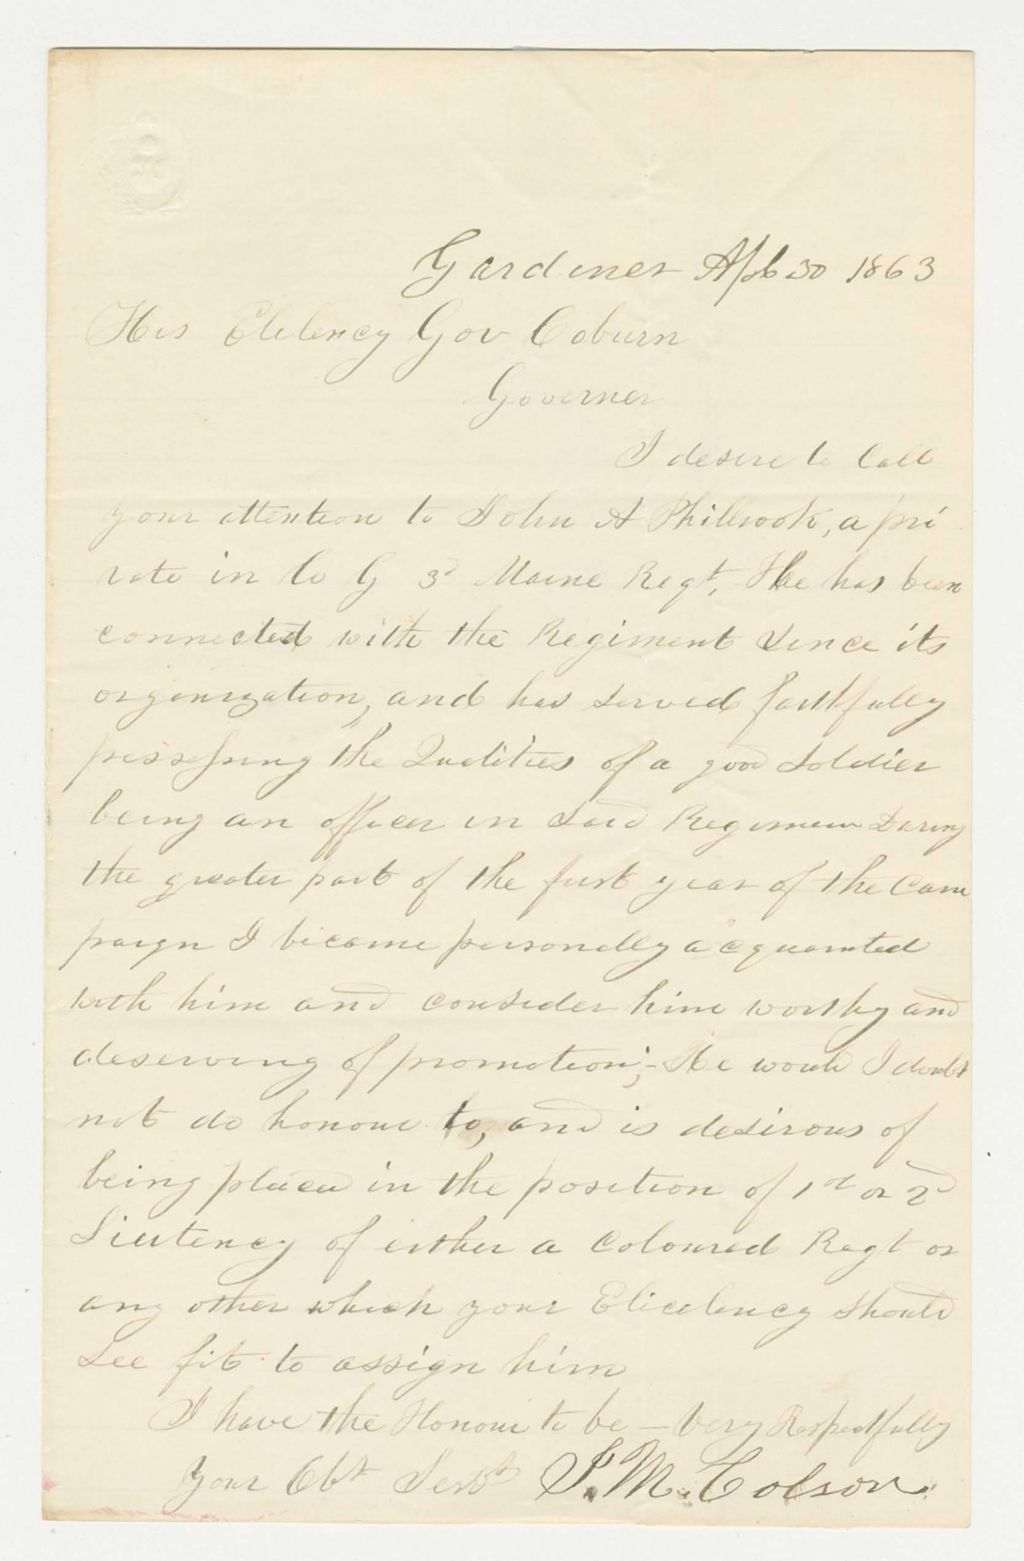 Gardiner Apl 30 1863
His Elelency Gov Coburn
Governer
I desire to Call
your attention to John A Philbrook, a pri
vate in Co G 3d Maine Regt, He has been
connected with the Regiment Since its
organization, and has served faithfully
possessing the Qualities of a good Soldier
being an officer in Said Regiment During
the greater part of the first year of the Cam
paign I became personally acquainted
with him and consider him worthy and
deserving of promotion;- He would I doubt
not do honour to, and is desirous of
being placed in the position of 1st or 2d
Lieutency of either a Coloured Regt or
any other which your Elicelency Should
See fit to assign him
I have the Honour to be - Very Respectfully
Your Obt Servt S. M. Colson.